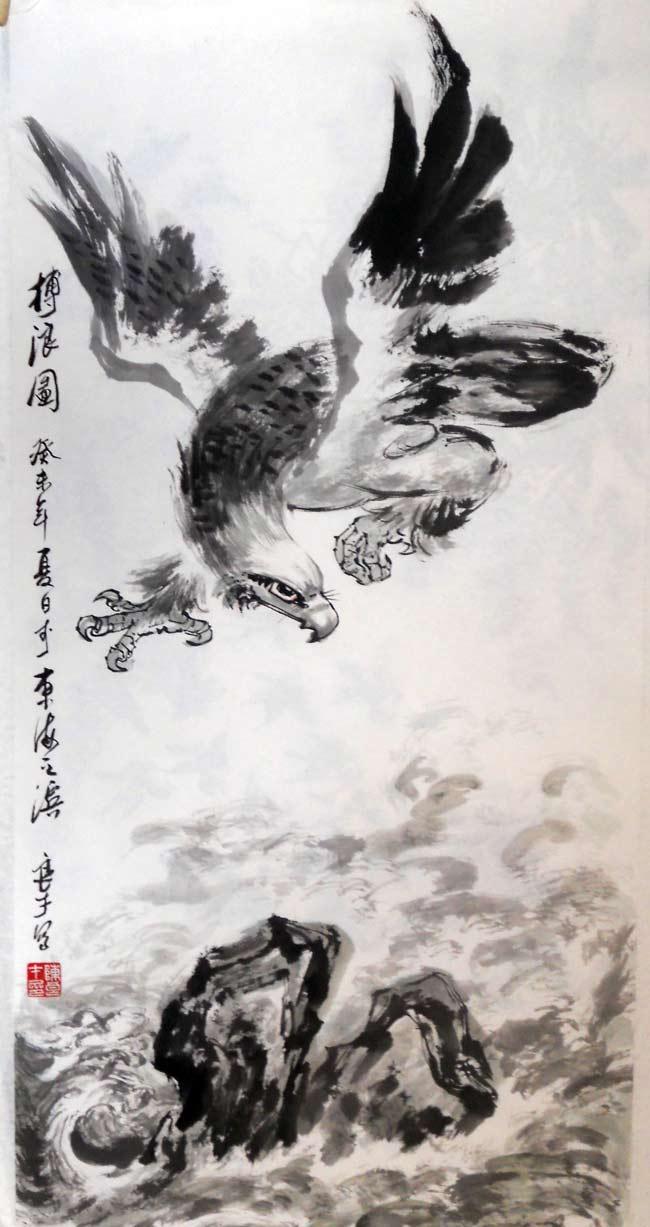 搏浪圖 癸未年夏日於東海之濱